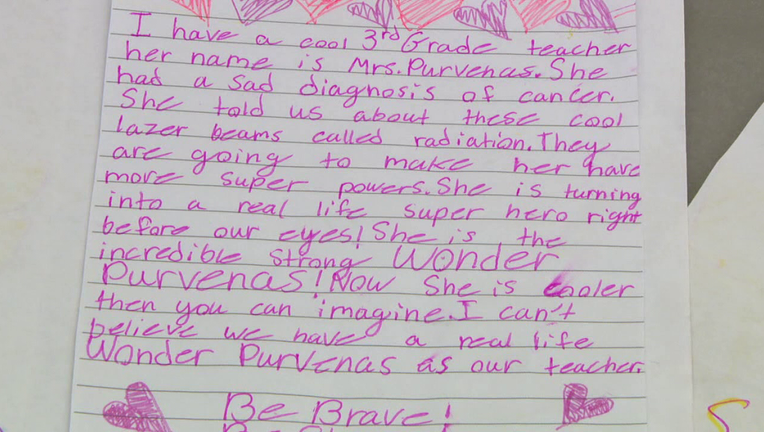 I have a cool 3rd Grade teacher
her name is Mrs.Purvenas.She
had a sad diagnosis of cancer.
She told us about these cool
lazer beams called radiation.They
are going to make her have
more super powers.She is turning
into a real life super hero right
before our eyes!She is the
incredible strong Wonder
Purvenas!Now She is cooler
then you can imagine.I can't
believe we have a real life
Wonder Purvenas as our teacher.
Be Brave!